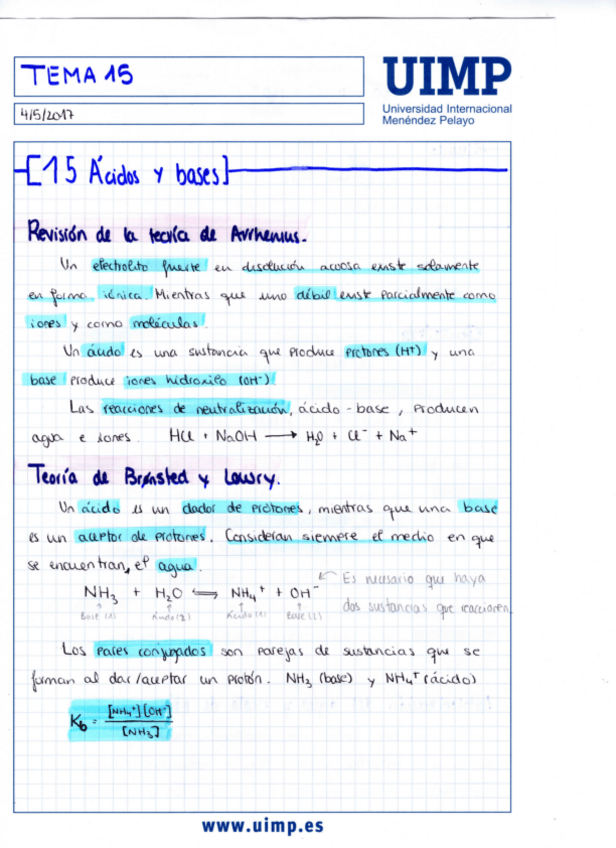 TEMA 15
UIMP
Universidad Internacional
Menéndez Pelayo
4/5/2017
[15 Ácidos y bases]
Revisión de la teoría de Arrhenius.
Un electrolito fuerte en disolución acuosa existe solamente
en forma iónica. Mientras que uno débil existe parcialmente como
iones y como moléculas.
Un ácido es una sustancia que produce protones (H+) y una
base produce iones hidroxilo (OH-)
Las reacciones de neutralización, ácido-base, producen
agua e iones. HCl + NaOH → H2O + Cl- + Na+
Teoría de Brønsted y Lowry.
Un ácido es un dador de protones, mientras que una base
es un aceptor de protones. Consideran siempre el medio en que
se encuentran, el agua.
Es necesario que haya
dos sustancias que reaccionen
NH3 + H2O ⇌ NH4+ + OH-
Base (1) Ácido (2) Ácido (1) Base (2)
Los pares conjugados son parejas de sustancias que se
forman al dar/aceptar un protón. NH3 (base) y NH4+ (ácido)
Kb = [NH4+][OH-]
[NH3]
www.uimp.es